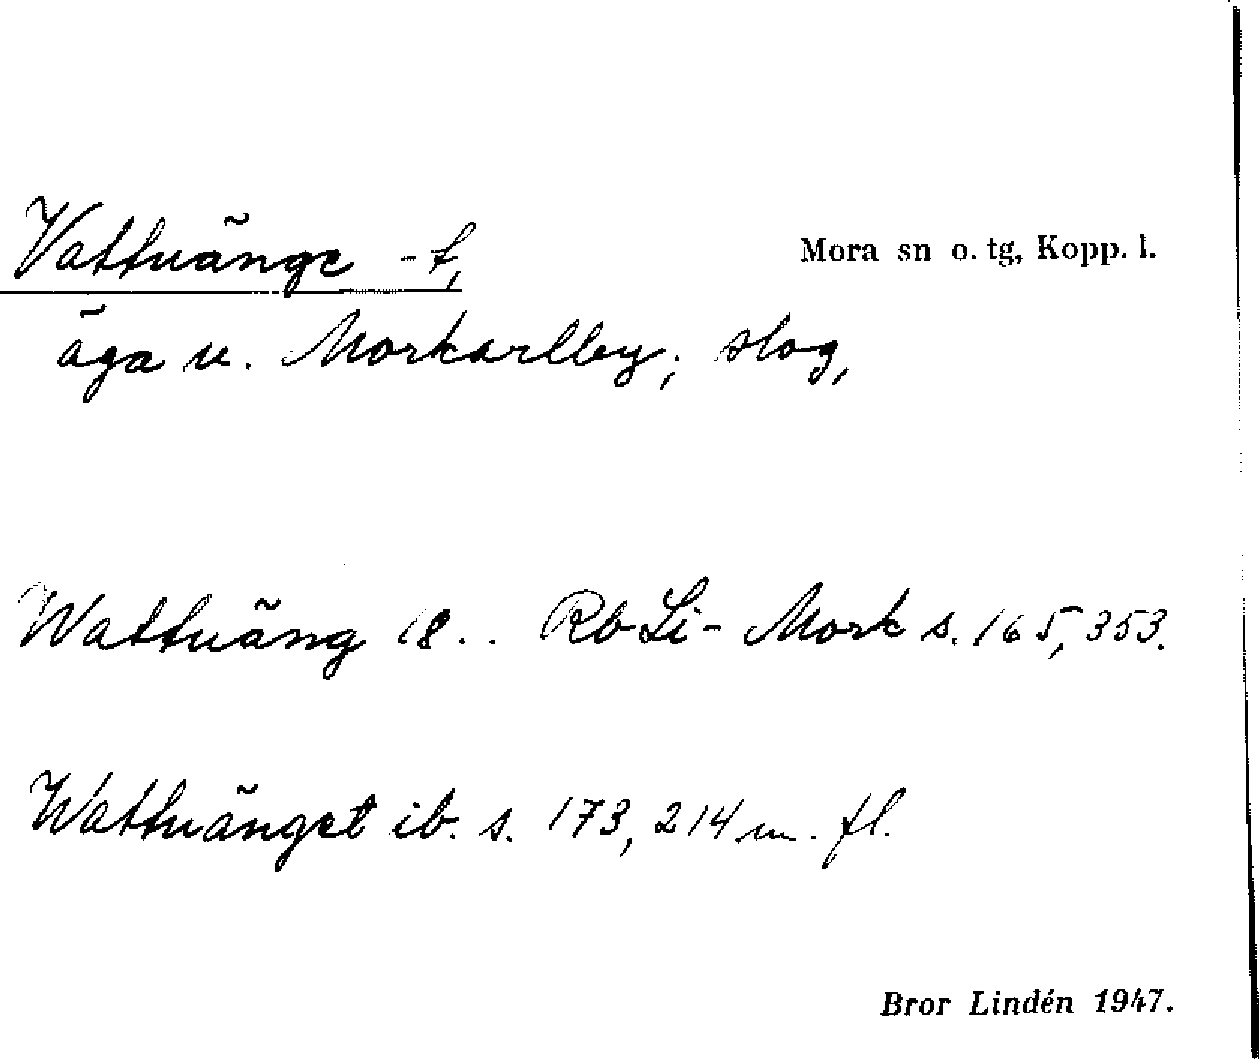 Vattuänge -t,
Mora sn o. tg, Kopp. l.
äga u. Morkarlby; slog,
Wattuäng 18.. Rb Li- Mork s. 165, 353.
Wattuänget ib. s. 173, 214 m. fl.
Bror Lindén 1947.